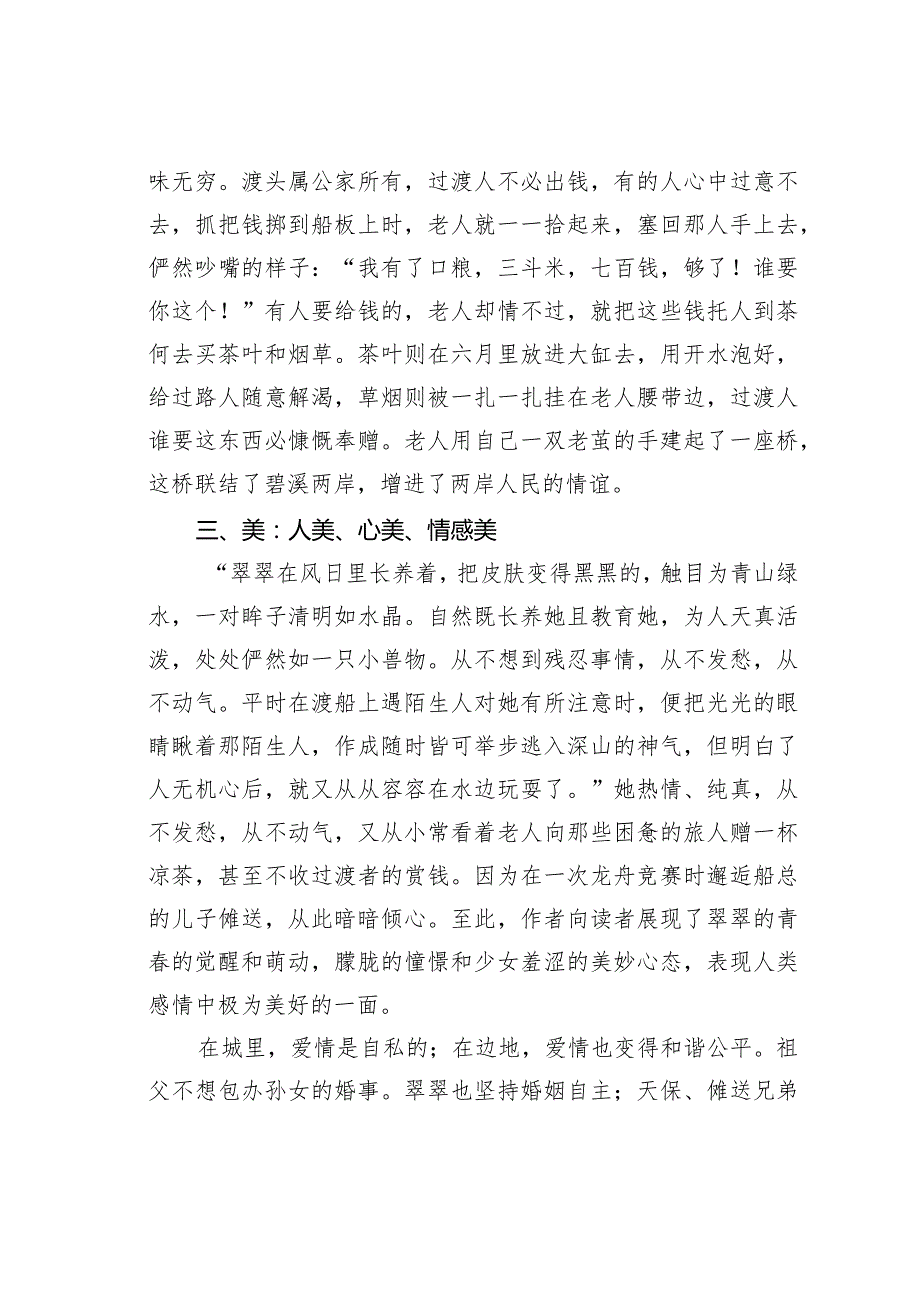 味无穷。渡头属公家所有，过渡人不必出钱，有的人心中过意不
去，抓把钱掷到船板上时，老人就一一拾起来，塞回那人手上去，
俨然吵嘴的样子：“我有了口粮，三斗米，七百钱，够了！谁要
你这个！”有人要给钱的，老人却情不过，就把这些钱托人到茶
何去买茶叶和烟草。茶叶则在六月里放进大缸去，用开水泡好，
给过路人随意解渴，草烟则被一扎一扎挂在老人腰带边，过渡人
谁要这东西必慷慨奉赠。老人用自己一双老茧的手建起了一座桥，
这桥联结了碧溪两岸，增进了两岸人民的情谊。
三、美：人美、心美、情感美
“翠翠在风日里长养着，把皮肤变得黑黑的，触目为青山绿
水，一对眸子清明如水晶。自然既长养她且教育她，为人天真活
泼，处处俨然如一只小兽物。从不想到残忍事情，从不发愁，从
不动气。平时在渡船上遇陌生人对她有所注意时，便把光光的眼
睛瞅着那陌生人，作成随时皆可举步逃入深山的神气，但明白了
人无机心后，就又从从容容在水边玩耍了。”她热情、纯真，从
不发愁，从不动气，又从小常看着老人向那些困惫的旅人赠一杯
凉茶，甚至不收过渡者的赏钱。因为在一次龙舟竞赛时邂逅船总
的儿子傩送，从此暗暗倾心。至此，作者向读者展现了翠翠的青
春的觉醒和萌动，朦胧的憧憬和少女羞涩的美妙心态，表现人类
感情中极为美好的一面。
在城里，爱情是自私的；在边地，爱情也变得和谐公平。祖
父不想包办孙女的婚事。翠翠也坚持婚姻自主；天保、傩送兄弟